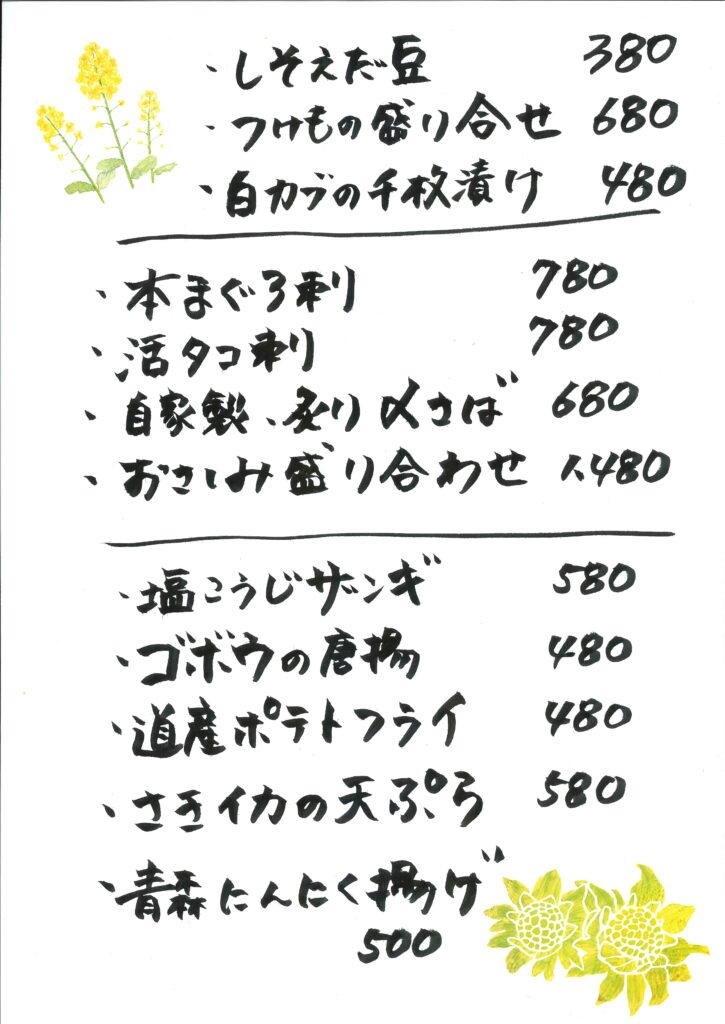 ・しそえだ豆 380
・つけもの盛り合せ 680
・白カブの千枚漬け 480
・本まぐろ刺 780
・活タコ刺 780
・自家製、炙り〆さば 680
・おさしみ盛り合わせ 1,480
・塩こうじザンギ 580
・ゴボウの唐揚 480
・道産ポテトフライ 480
・さきイカの天ぷら 580
・青森にんにく揚げ
500